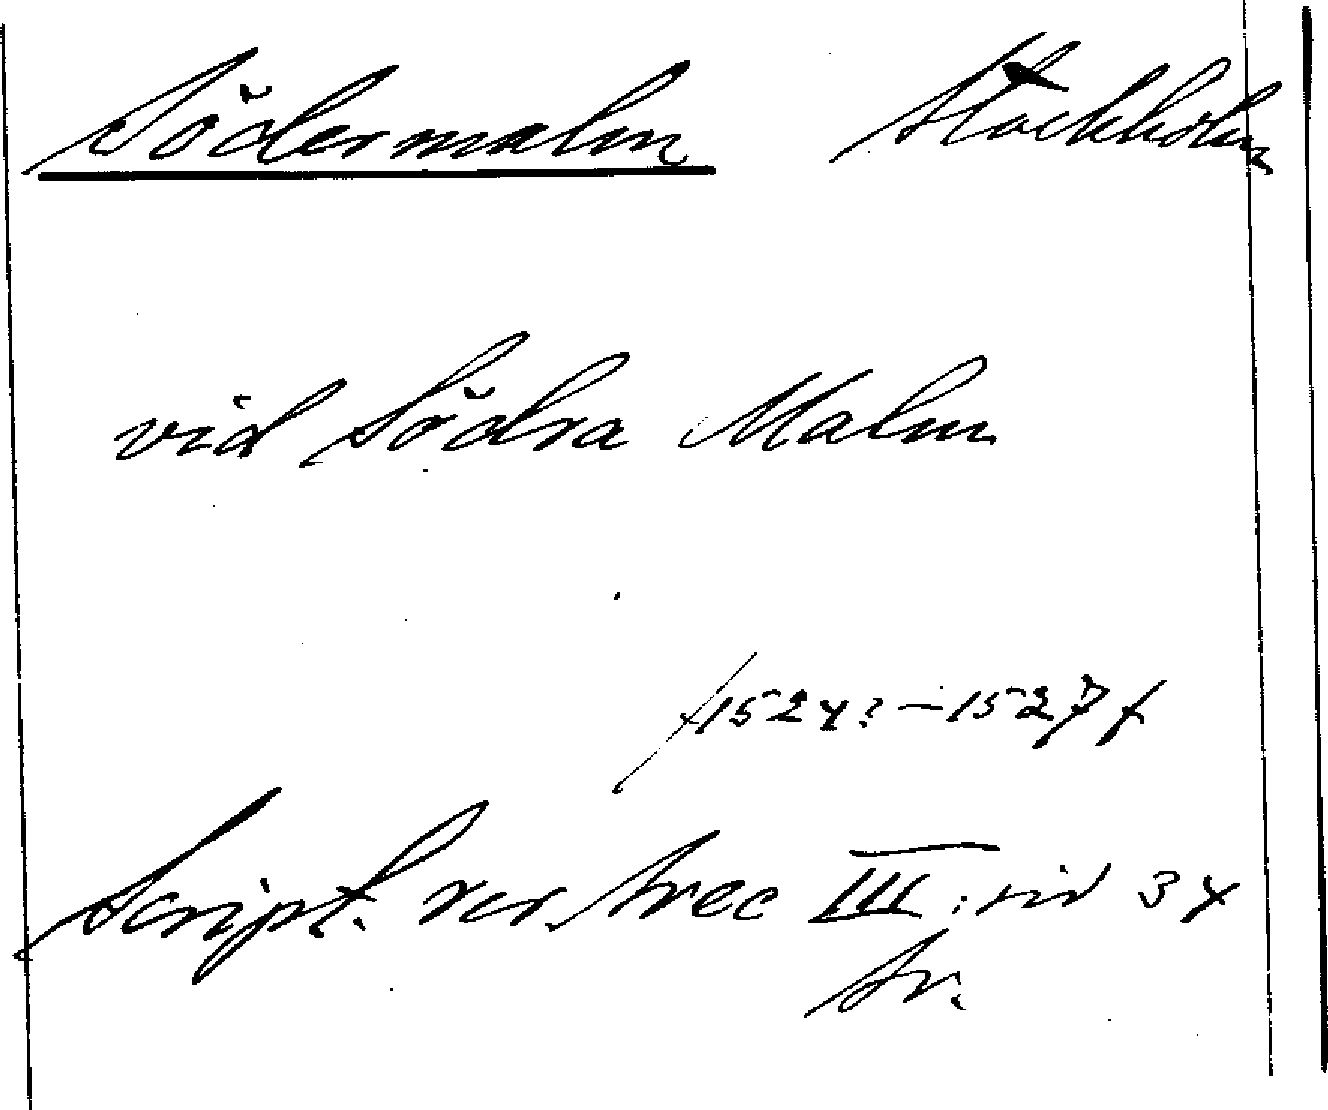 Södermalm Stockholm
vid Södra Malm
/1524?–1527/
Script. rer. Svec III: sid 34
Sv.